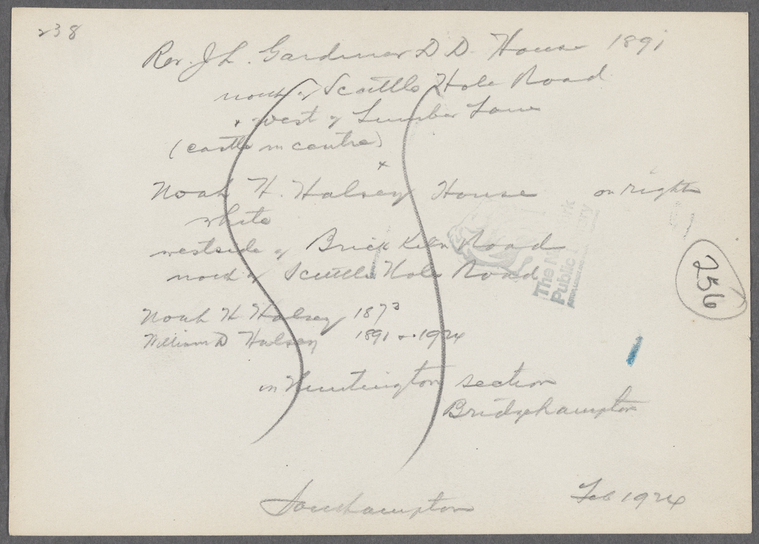 238
Rev. J L. Gardiner D D. House 1891
north of Scuttle Hole Road
+ west of Lumber Lane
(castle in centre)
x
Noah H. Halsey House on right
white
westside of Brick Kiln Road
north of Scuttle Hole Road
Noah H Halsey 1873
William D Halsey 1891 + 1924
in Huntington section
Bridgehampton
Southampton Feb 1924
256
The New York
Public Library